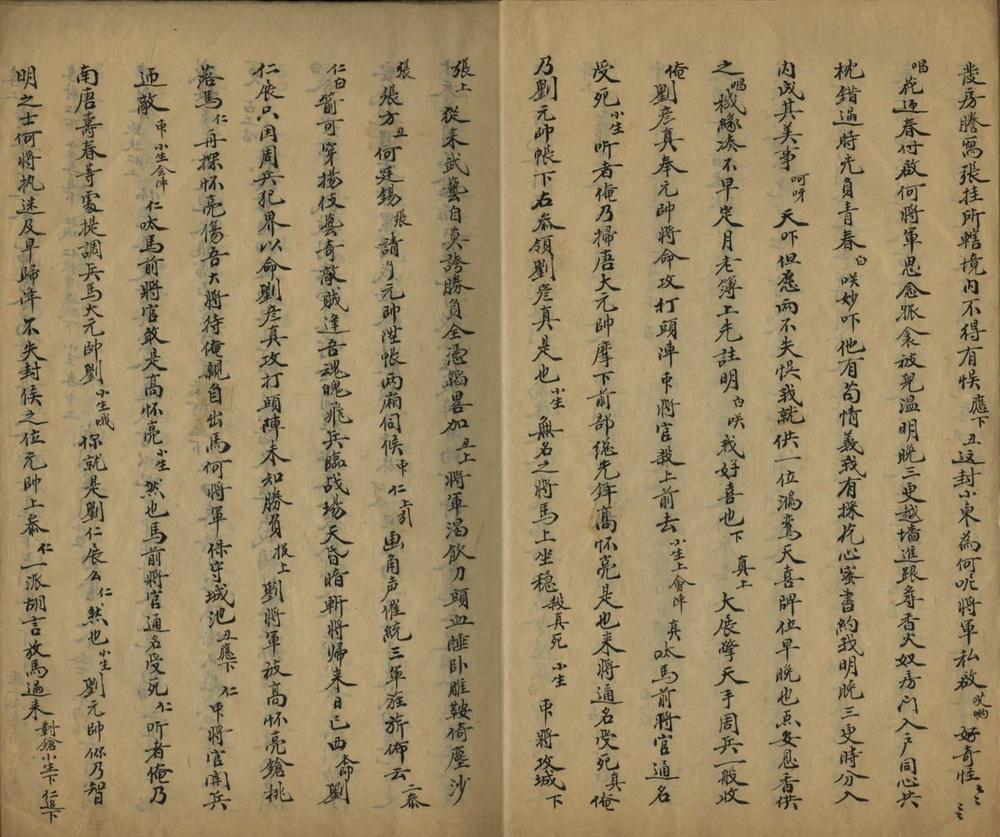 發房謄寫張挂所轄境內不得有悞 應下 丑 这封小柬為何呢將軍私啟 哎喲 好奇怪
唱 花迎春付啟何將軍思念孤衾被冕温明晚三更越墻進跟尋香火奴房門入戶同心共
枕錯過時光負青春 白 咲妙吓他有苟情義我有採花心蜜書約我明晚三更時分入
內成其美事 呵呀 天吓但愿两不失悞我就供一位鴻鸞天喜牌位早晚也点安息香供
之 唱 緣湊不早定月老簿上先註明 白 咲 我好喜也 下 真上 大展擎天手周兵一般收
俺 劉彦真奉元帥將命攻打頭陣 衆將官殺上前去 小生上會陣 真 呔馬前將官通名
受死 小生 听者俺乃掃唐大元帥摩下前部總先鋒高怀亮是也来將通名受死 真 俺
乃劉元帥帳下右叅領劉彦真是也 小生 無名之將馬上坐穏 殺真死 小生 衆將攻城 下
張上 從来武藝自真誇勝負全憑韜畧加 丑上 將軍渴飲刀頭血睡卧雕鞍倚塵沙
張 張方 丑 何廷錫 張 請了元帥陞帳两廂伺候 衆 仁上引 画角声催統三軍旌旂佈云 二叅
仁白 箭可穿揚伎藝奇敵賊逢吾魂魄飛兵臨战場天昏暗斬將帰来日已西 命劉
仁展只因周兵犯界以命劉彦真攻打頭陣未知勝負 报上 劉將軍被高怀亮鎗挑
落馬 仁 再探怀亮傷吾大將待俺親自出馬何將軍 保守城池 丑應下 仁 衆將官開兵
迊敵 衆 小生会陣 仁 呔馬前將官敢是高怀亮 小生 然也馬前將官通名受死 仁 听者俺乃
南唐壽春等處提調兵馬大元帥劉 小生 哦 你就是劉仁展么 仁 然也 小生 劉元帥你乃智
明之士何將执迷及早歸降 不失封侯之位元帥上叅 仁 一派胡言放馬過来 對鎗小生下 仁追下